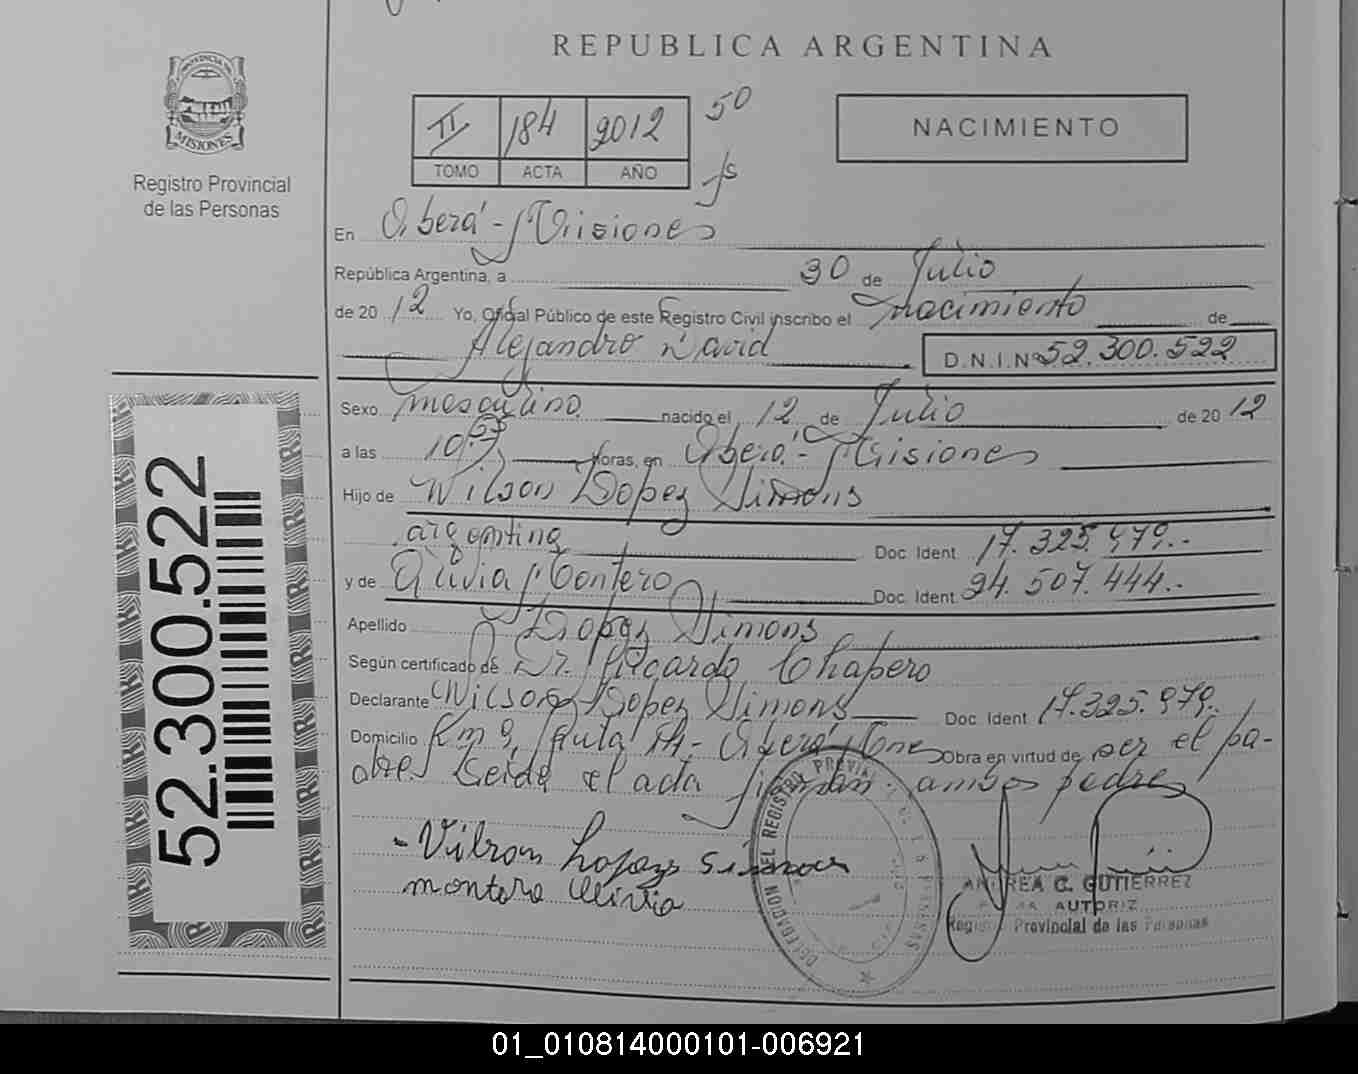 REPUBLICA ARGENTINA
PROVINCIA DE
MISIONES
Registro Provincial
de las Personas
II 184 2012 50
TOMO ACTA AÑO
fs
NACIMIENTO
En Oberá - Misiones
República Argentina, a 30 de Julio
de 2012 Yo, Oficial Público de este Registro Civil inscribo el nacimiento de
Alejandro David D.N.I.Nº 52.300.522
Sexo masculino nacido el 12 de Julio de 2012
a las 10:55 horas, en Oberá - Misiones
Hijo de Wilson Lopez Simons
argentina Doc. Ident. 17.325.979.-
y de Olivia Montero Doc. Ident. 94.507.444.-
Apellido Lopez Simons
Según certificado de Dr. Ricardo Chapero
Declarante Wilson Lopez Simons Doc. Ident 17.325.979.-
Domicilio Km 9, Ruta 14 - Oberá Mnes Obra en virtud de ser el pa-
dre. Leida el acta firman ambos padres
- Vilson Lopez Simons
montero Olivia
ANDREA C. GUTIERREZ
AUTORIZ
Registro Provincial de las Personas
DELEGACION DEL REGISTRO PROVINCIAL
52.300.522
01_010814000101-006921